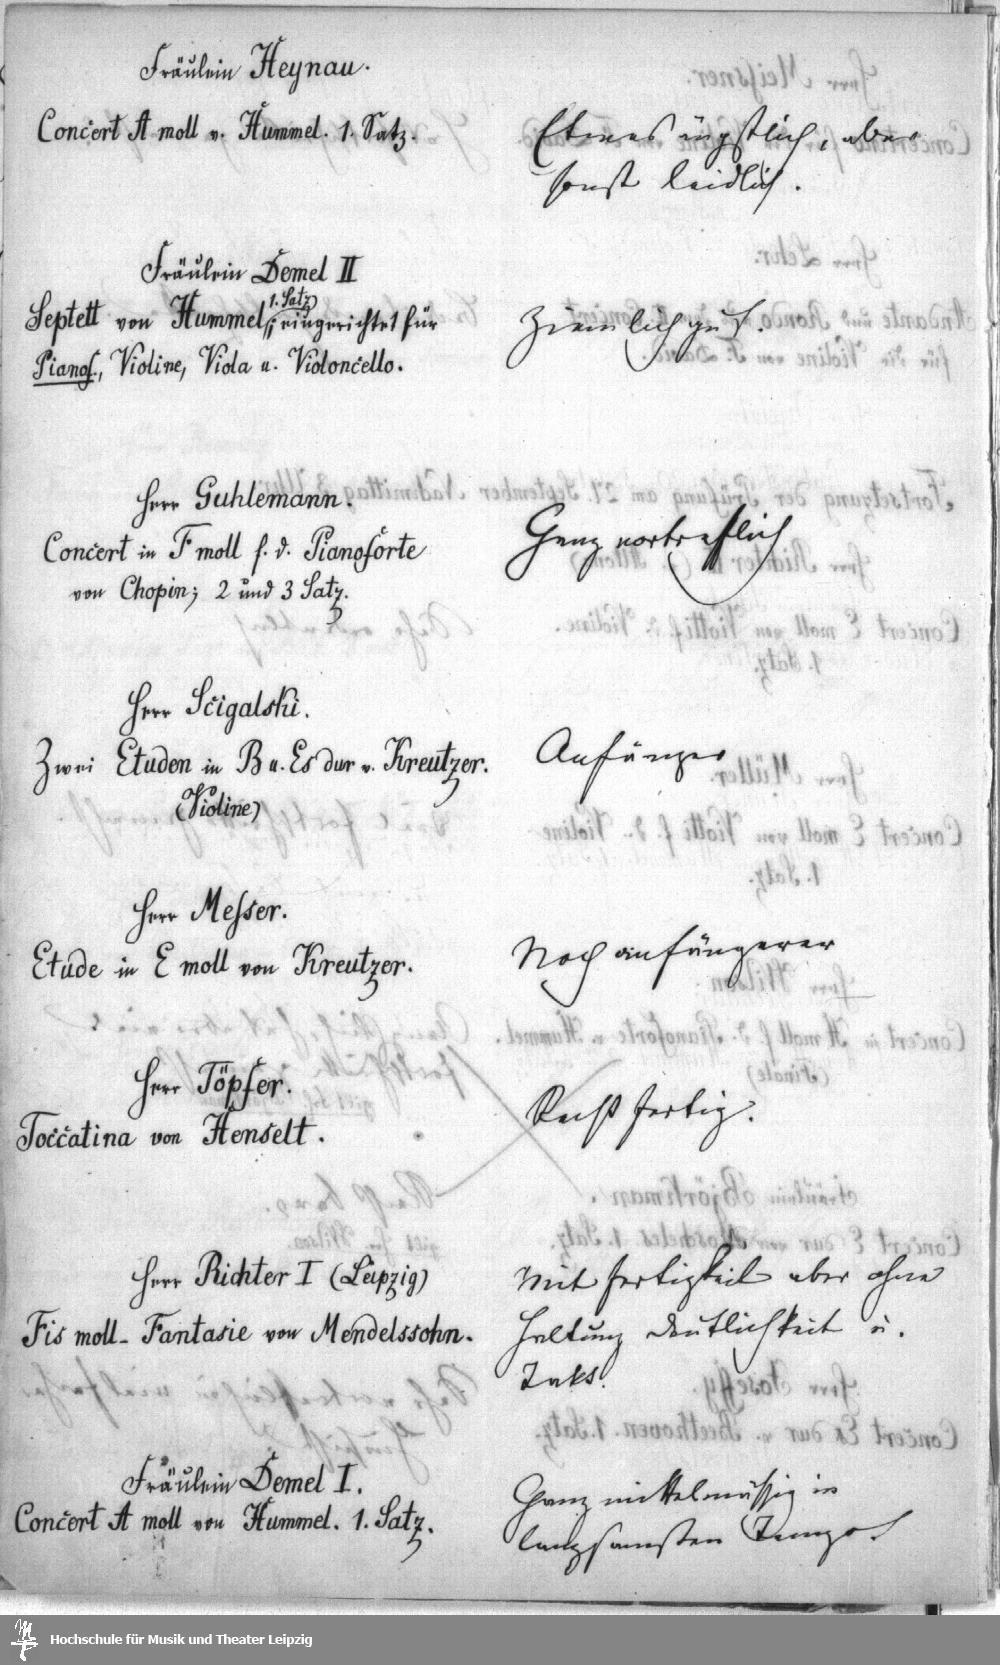 Fräulein Heynau.
Concert A moll v. Hummel. 1. Satz.
Etwas ängstlich, aber
sonst leidlich.
Fräulein Demel II
1. Satz
Septett von Hummel, eingerichtet für
Pianof., Violine, Viola u. Violoncello.
Ziemlich gut.
Herr Guhlemann.
Concert in F moll f. d. Pianoforte
von Chopin; 2 und 3 Satz.
Ganz vortrefflich
Herr Scigalski.
Zwei Etuden in B u. Es dur v. Kreutzer.
(Violine)
Anfänger
Herr Messer.
Etude in E moll von Kreutzer.
Noch anfängerer
Herr Töpfer.
Toccatina von Henselt.
Recht fertig.
Herr Richter I (Leipzig)
Fis moll - Fantasie von Mendelssohn.
Mit Fertigkeit aber ohne
Haltung Deutlichkeit u.
Takt.
Fräulein Demel I.
Concert A moll von Hummel. 1. Satz.
Ganz mittelmässig im
langsamsten Tempo.
Hochschule für Musik und Theater Leipzig